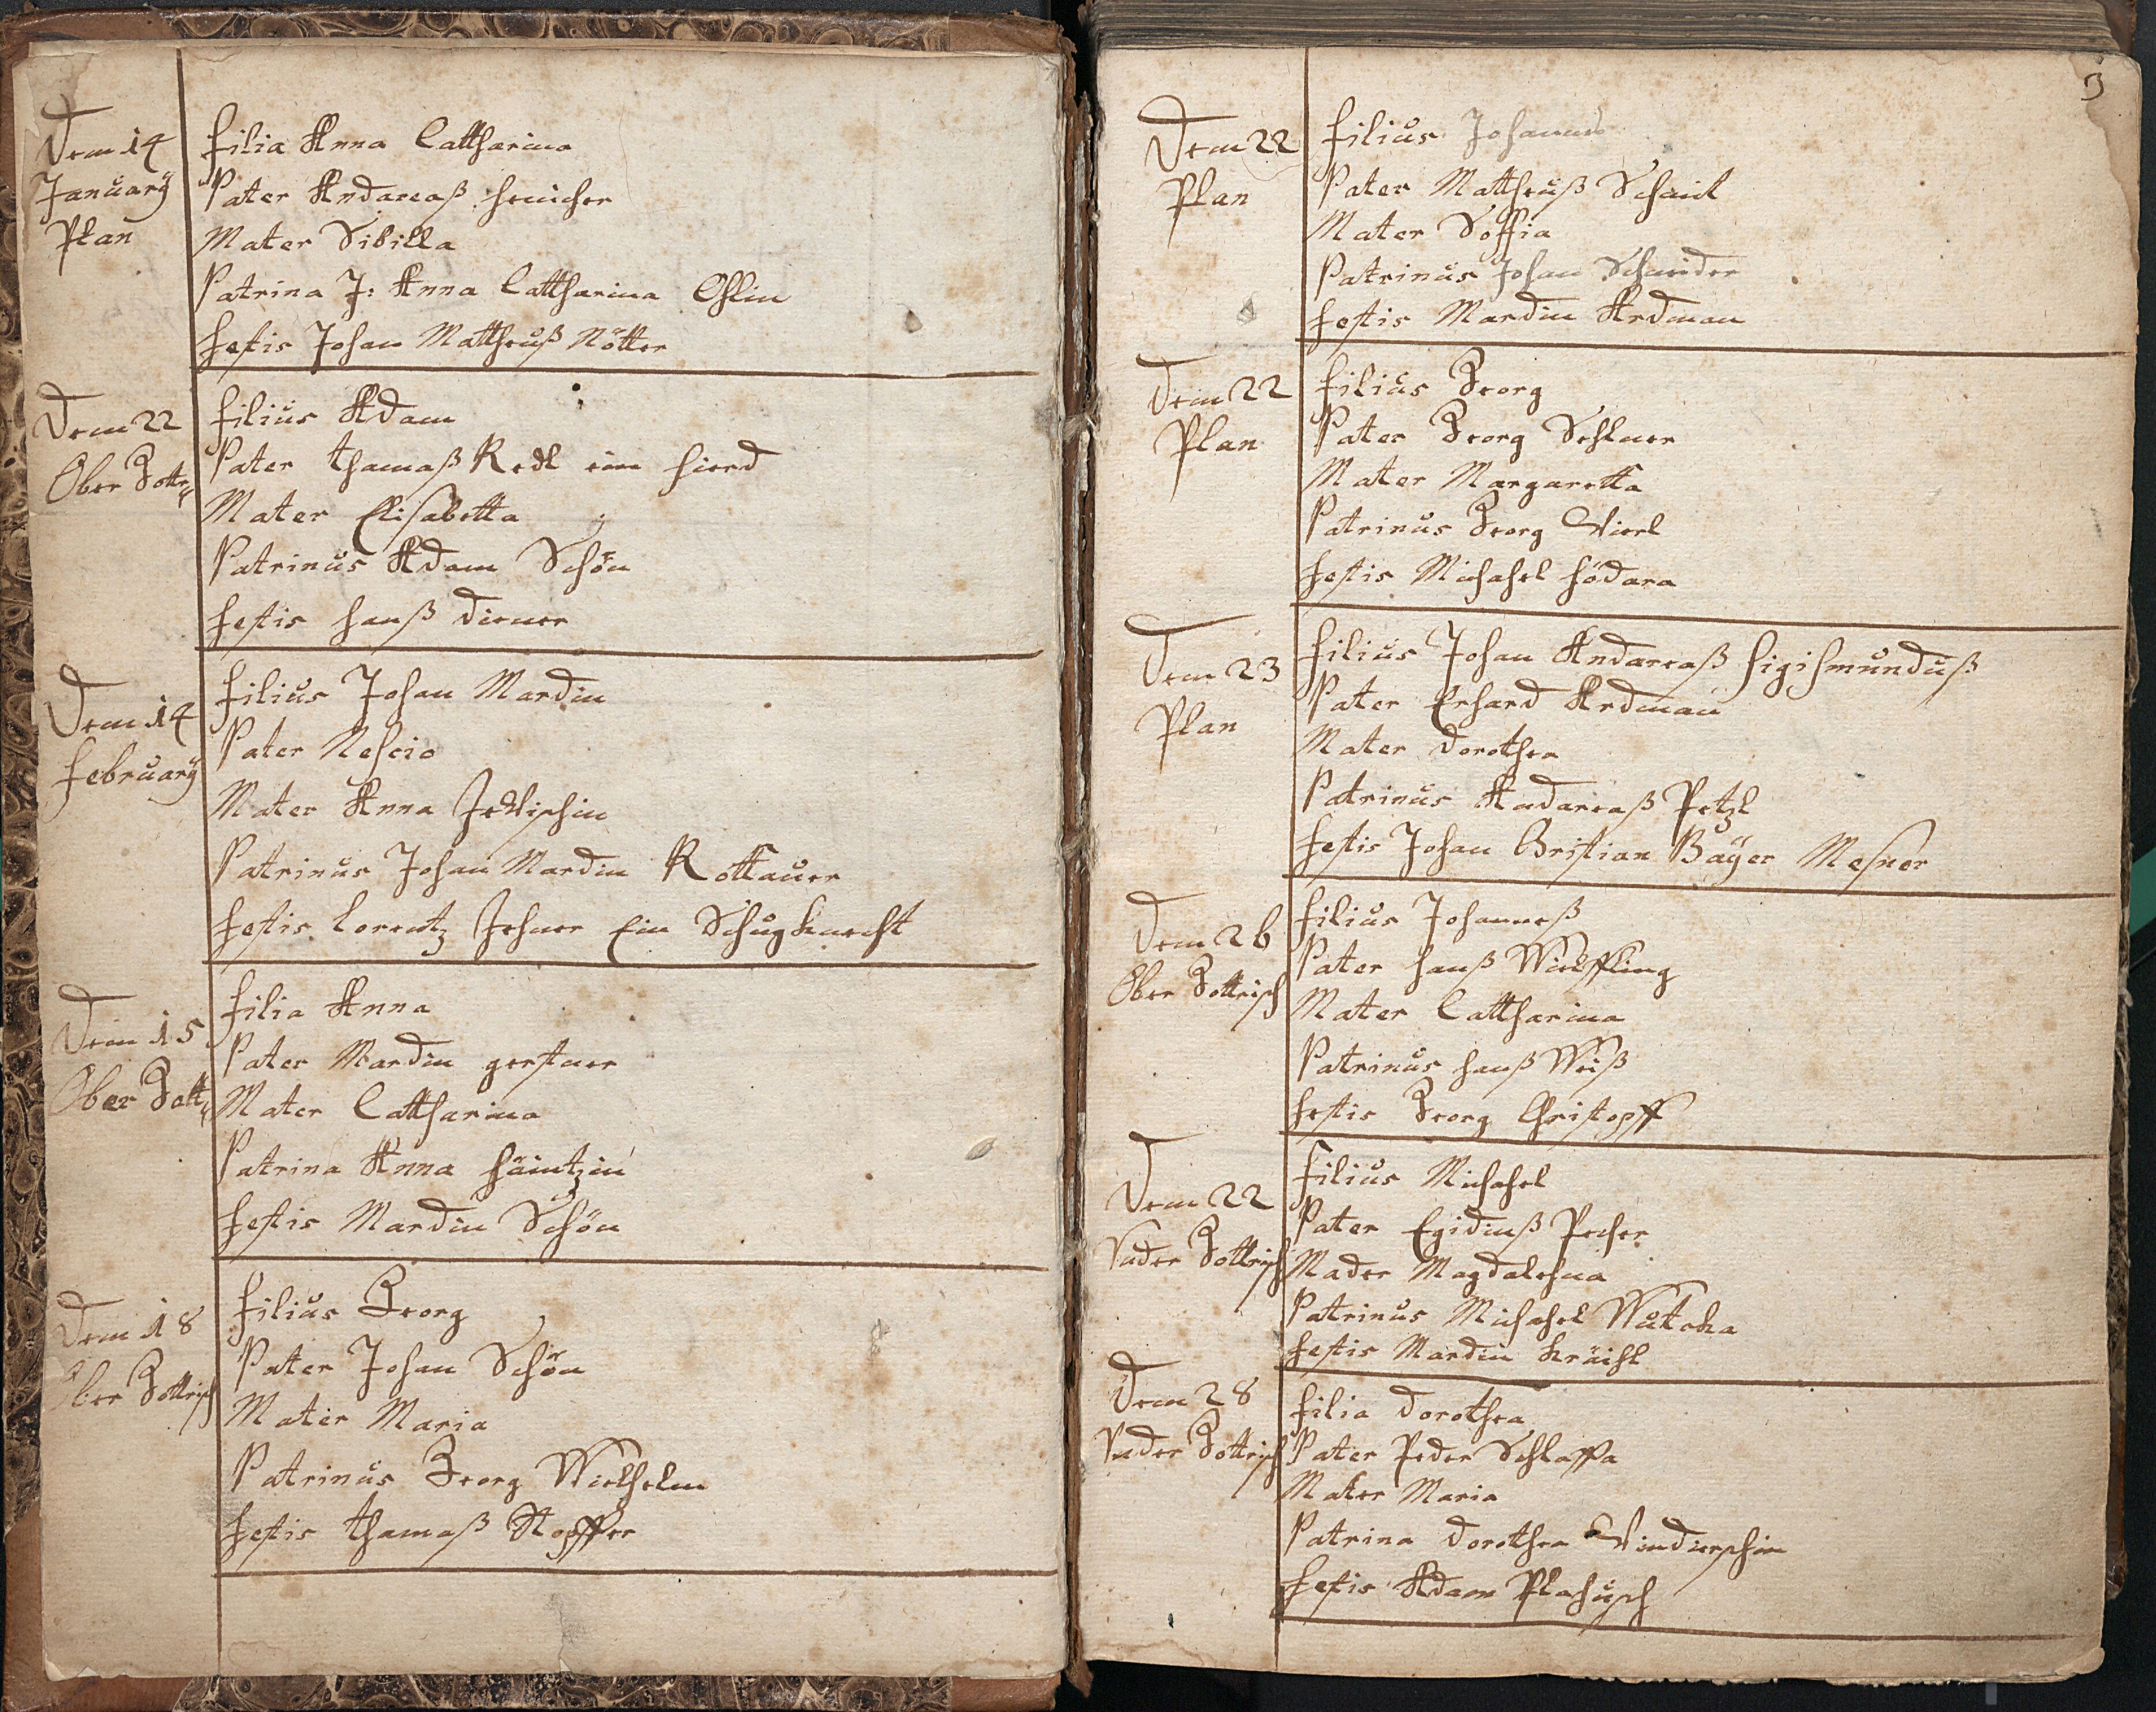 Dem 14
January
Plan
filia Anna Cattharina
Pater Andareaß heuicher
Mater Sibilla
Patrina J: Anna Cattharina Ohlin
testis Johan Mattheuß Nötter
Dem 22
Ober Gottr
filius Adam
Pater thamaß Redl ein hierd
Mater Elisabetta
Patrinus Adam Schön
testis hanß diener
Dem 14
february
filius Johan Mardin
Pater Nescio
Mater Anna
Patrinus Johan Mardin Rottauer
testis Lorentz Ein
Dem 15
Ober Gott
filia Anna
Pater Mardin gerstner
Mater Cattharina
Patrina Anna häintzin
testis Mardin Schön
Dem 18
Ober Gottrisch
filius Georg
Pater Johan Schön
Mater Maria
Patrinus Georg Wielhelm
testis thamaß Stopffer
3
Dem 22
Plan
filius Johannes
Pater Mattheuß
Mater Soffia
Patrinus Johan Schneider
testis Mardin Ardman
Dem 22
Plan
filius Georg
Pater Georg
Mater Margaretta
Patrinus Georg
testis Michahel hödara
Dem 23
Plan
filius Johan Andareaß Sigismunduß
Pater Erhard Ardman
Mater dorothea
Patrinus Andareaß Petzl
testis Johan Cristian Bäyer Mesner
Dem 26
Ober Gottrisch
filius Johanneß
Pater hanß Wielffling
Mater Cattharina
Patrinus hanß Weiß
testis Georg Christopff
Dem 22
Under Gottrisch
filius Michahel
Pater Egidiuß Pecher
Mader Magdalehna
Patrinus Michahel Watcka
testis Mardin kräihl
Dem 28
Under Gottrisch
filia dorothea
Pater Peder Schlaffa
Mater Maria
Patrina dorothea
testis Adam Plahusch